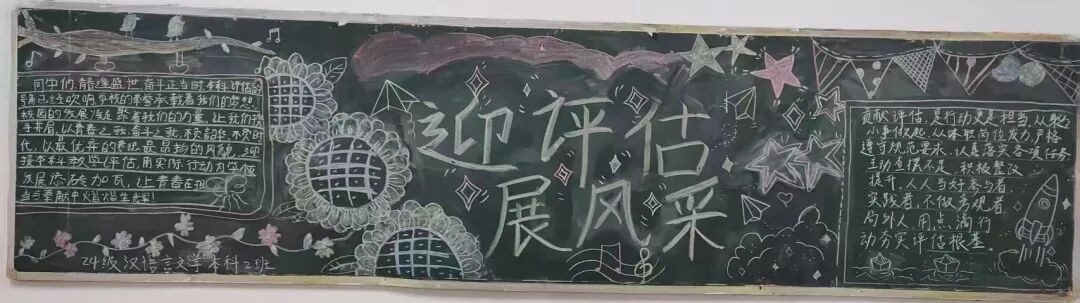 同学们,青逢盛世,奋斗正当时,本科评估的
号角已经吹响,学校的荣誉承载着我们的梦想,
校园的发展凝聚着我们的力量,让我们携
手并肩,以青春之我,奋斗之我,不负韶华,不负时
代,以最优异的表现,最昂扬的风貌,迎
接本科教学评估,用实际行动为学校
发展添砖加瓦,让青春在担
当与奉献中熠熠生光彩!
24级汉语言文学本科2班
迎评估
展风采
贡献评估,是行动更是担当,从身边
小事做起,从本职岗位发力,严格
遵守规范要求,认真落实各项任务
主动查摆不足,积极整改
提升,人人当好参与者,
实践者,不做旁观者
局外人,用点滴行
动夯实评估根基.